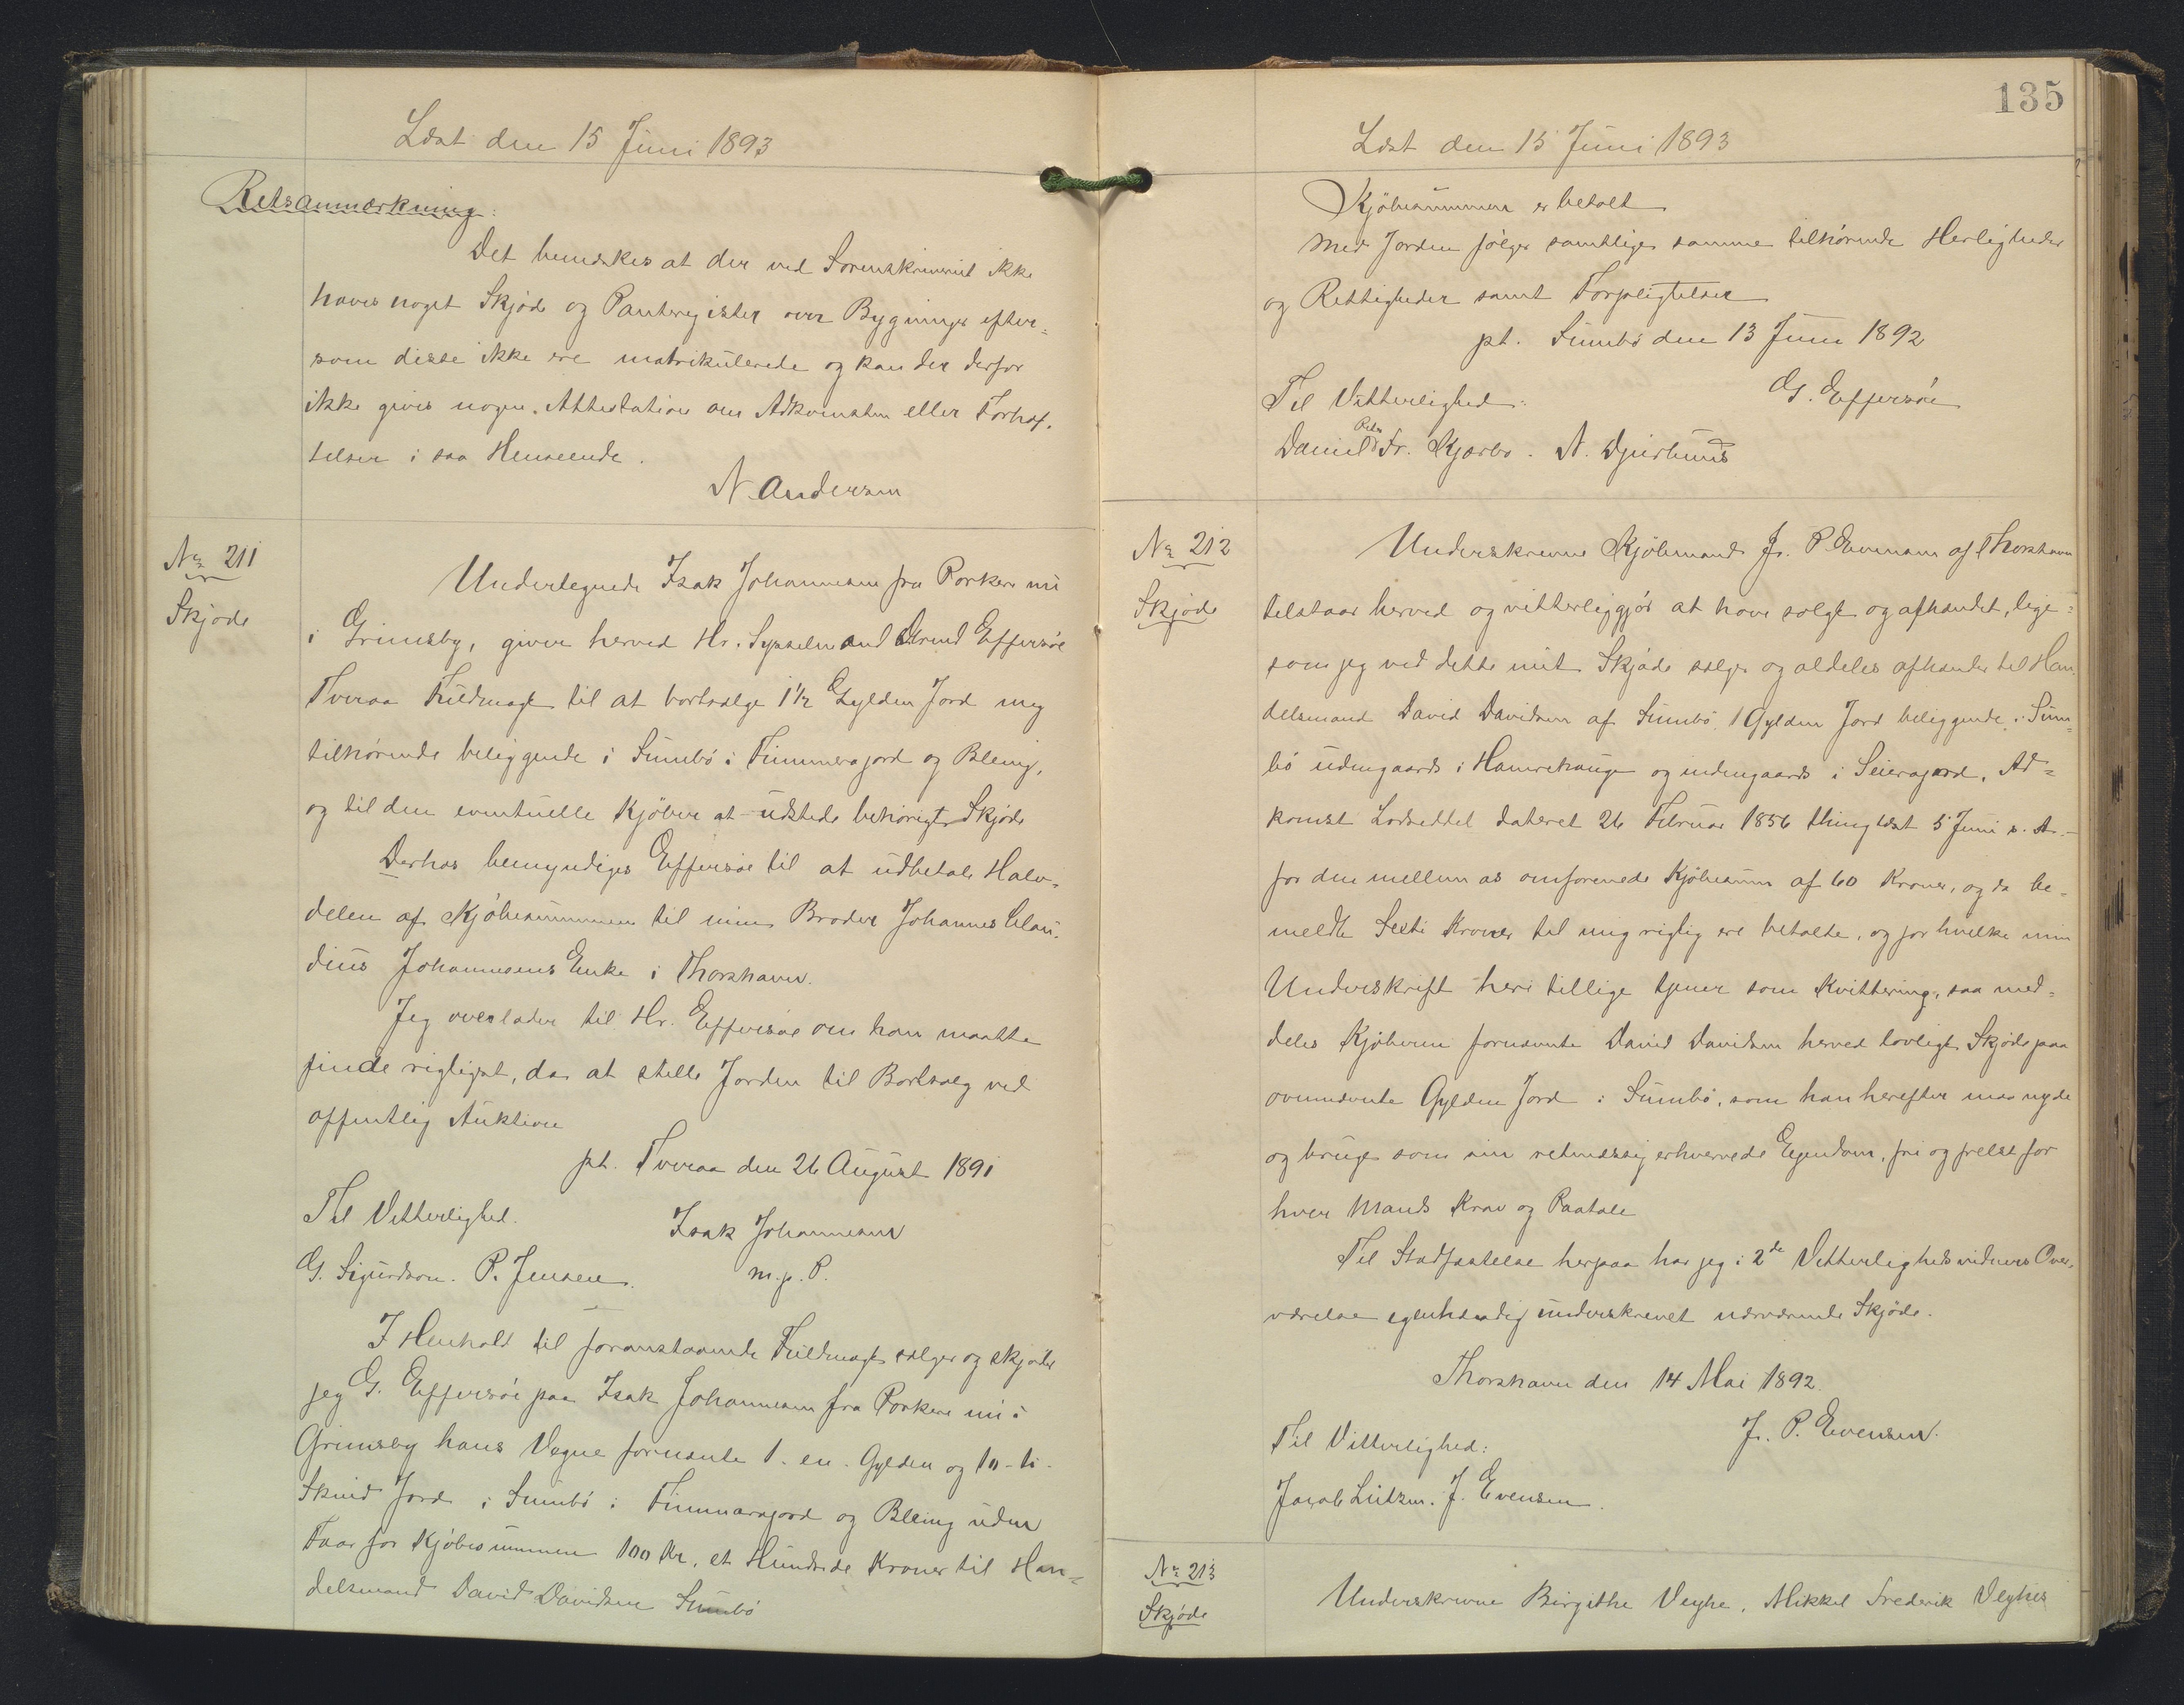 Læst den 15 Juni 1893
Retsanmærkning:
Det bemærkes at der ved Sorenskriveriet ikke
haves noget Skjøde og Panteregister over Bygninger efter=
som disse ikke ere matrikulerede og kan der derfor
ikke gives nogen Attestation om Adkomsten eller Forhæf.
telser i saa Henseende.
N. Andersen
No 211
Skjøde
Undertegnede Isak Johannesen fra Porkere nu
i Grimsby, giver herved Hr. Sysselmand Effersøe
Tveraa Fuldmagt til at bortsælge 1 1/2 Gylden Jord mig
tilhørende beliggende i Sumbø i Timmeragjord og Bleing,
og til den eventuelle Kjøber at udstede behørigt Skjøde
Derhos bemyndiges Effersøe til at udbetale Halv=
delen af Kjøbesummen til min Broder Johannes Clau=
dius Johannesens Enke i Thorshavn.
Jeg overlader til Hr. Effersøe om han maatte
finde rigtigst, da at stille Jorden til Bortsalg ved
offentlig Auktion
pt. Tveraa den 26 August 1891
Til Vitterlighed.
Isak Johannesen
G. Sigurdson. P. Jensen.
m. p. P.
I Henhold til foranstaaende Fuldmagt sælger og skjøder
jeg G. Effersøe paa Isak Johannesen fra Porkere nu i
Grimsby hans Vegne fornævnte 1 - en - Gylden og 10 - ti -
Skind Jord i Sumbø i Timmeragjord og Bleing uden
Faar for Kjøbesummen 100 Kr, et Hundrede Kroner til Han=
delsmand David Davidsen Sumbø
135
Læst den 15 Juni 1893
Kjøbesummen er betalt
Med Jorden følger samtlige samme tilhørende Herligheder
og Rettigheder samt Forpligtelser
pt. Sumbø den 13 Juni 1892
Til Vitterlighed:
G. Effersøe
Daniel Fr. Kjærbo. N. Djurhuus
No 212
Skjøde
Underskrevne Kjøbmand J. P. Evensen af Thorshavn
tilstaar herved og vitterliggjør at have solgt og afhændet, lige=
som jeg ved dette mit Skjøde sælger og aldeles afhænder til Han
delsmand David Davidsen af Sumbø 1 Gylden Jord beliggende i Sum=
bø udengaards i Hamrehauge og indengaards i Seieragjord, Ad=
komst Lodseddel dateret 26 Februar 1856 thinglæst 5 Juni s. A. -
for den mellem os omforenede Kjøbesum af 60 Kroner, og da be=
meldte Sexti Kroner til mig rigtig ere betalte, og for hvilke min
Underskrift heri tillige tjener som Kvittering, saa med=
deles Kjøberen fornævnte David Davidsen herved lovligt Skjøde paa
ovennævnte Gylden Jord i Sumbø, som han herefter maa nyde
og bruge som sin retmæssig erhvervede Egendom, fri og frelst for
hver Mands Krav og Paatale
Til Stadfæstelse herpaa har jeg i 2de Vitterlighedsvidners Over=
værelse egenhændig underskrevet nærværende Skjøde.
Thorshavn den 14 Mai 1892.
Til Vitterlighed:
J. P. Evensen.
Jacob Lützen. J. Evensen.
No 213
Skjøde
Underskrevne Birgithe Veyhe, Mikkel Frederik Veyhes